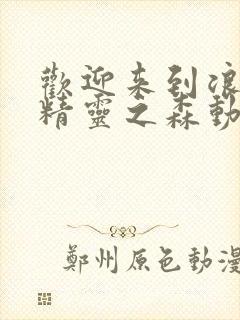 歡迎来到浪
精靈之森動
鄭州原色動漫